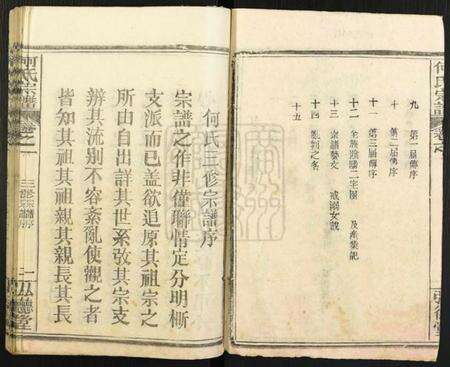 何氏宗譜
卷之
九 第一屆傳序
十 第二屆傳序
十一 第三屆傳序
十二 全族陰陽二宅圖 及產業記
十三 宗譜藝文 戒溺女說
十四
十五
何氏三修宗譜序
宗譜之作非僅聯情定分明椒
支派而已蓋欲追原其祖宗之
所由自出詳其世系攷其宗支
辨其流別不容紊亂使觀之者
皆知其祖其祖親其親長其長
何氏宗譜
卷之一
三修宗譜序
一